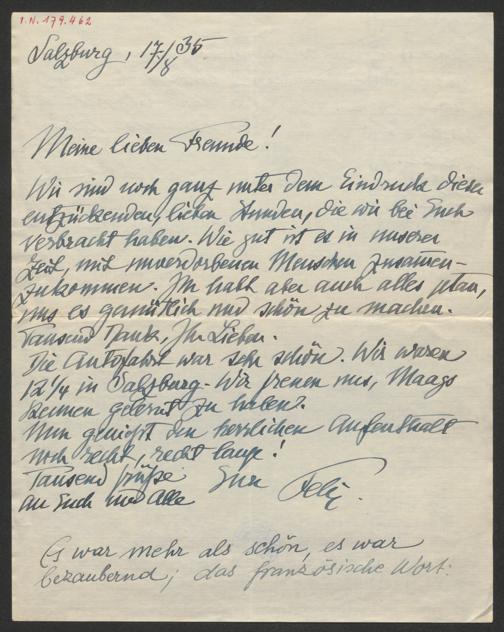 I.N. 179.462
Salzburg, 17/8 35
Meine lieben Freunde!
Wir sind noch ganz unter dem Eindrucke dieser
entzückenden, lieben Stunden, die wir bei Euch
verbracht haben. Wie gut ist es in unserer
Zeit, mit unverdorbenen Menschen zusammen-
zukommen. Ihr habt aber auch alles getan,
uns es gemütlich und schön zu machen.
Tausend Dank, Ihr Lieben.
Die Autofahrt war sehr schön. Wir waren
12 1/4 in Salzburg. Wir freuen uns, Maags
kennen gelernt zu haben.
Nun genießt den herrlichen Aufenthalt
noch recht, recht lange!
Tausend Grüße Euer Felix.
an Euch und Alle
Es war mehr als schön, es war
bezaubernd; das französische Wort: